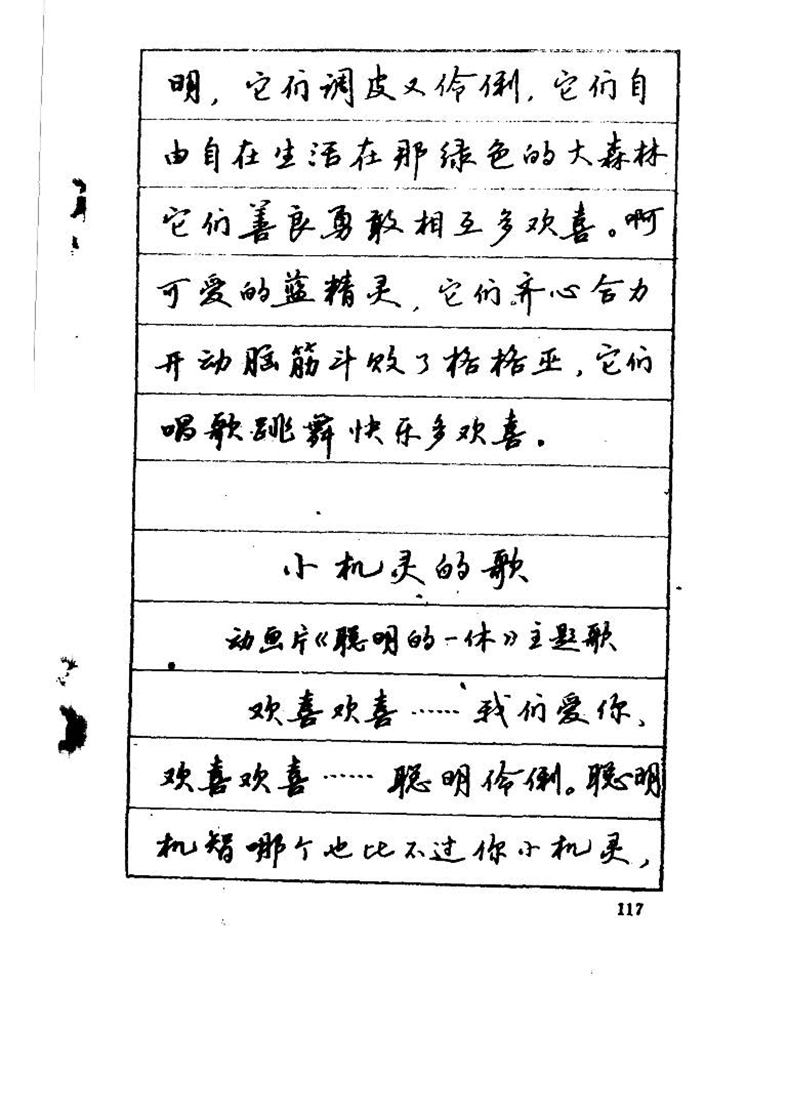 明，它们调皮又伶俐，它们自
由自在生活在那绿色的大森林
它们善良勇敢相互多欢喜。啊
可爱的蓝精灵，它们齐心合力
开动脑筋斗败了格格巫，它们
唱歌跳舞快乐多欢喜。
小机灵的歌
动画片《聪明的一休》主题歌
欢喜欢喜……我们爱你、
欢喜欢喜……聪明伶俐。聪明
机智哪个也比不过你小机灵，
117